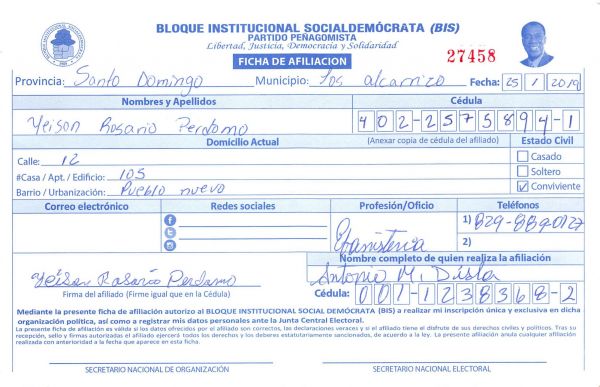 BLOQUE INSTITUCIONAL SOCIALDEMÓCRATA (BIS)
PARTIDO PEÑAGOMISTA
Libertad, Justicia, Democracia y Solidaridad
FICHA DE AFILIACION
27458
Provincia: Santo Domingo Municipio: Los alcarrizo Fecha: 25 1 2019
Nombres y Apellidos Cédula
Yeison Rosario Perdomo 402-2575894-1
Domicilio Actual (Anexar copia de cédula del afiliado) Estado Civil
Calle: 12 Casado
#Casa / Apt. / Edificio: 105 Soltero
Barrio / Urbanización: Pueblo nuevo Conviviente
Correo electrónico Redes sociales Profesión/Oficio Teléfonos
1) 829-889-0127
2)
Nombre completo de quien realiza la afiliación
Yeison Rosario Perdomo Antonio M.
Firma del afiliado (Firme igual que en la Cédula) Cédula: 001-1238368-2
Mediante la presente ficha de afiliación autorizo al BLOQUE INSTITUCIONAL SOCIAL DEMÓCRATA (BIS) a realizar mi inscripción única y exclusiva en dicha
organización política, así como a registrar mis datos personales ante la Junta Central Electoral.
La presente ficha de afiliación es válida si los datos ofrecidos por el afiliado son correctos, las declaraciones veraces y si el afiliado tiene el disfrute de sus derechos civiles y políticos. Tras su
recepción, sello y firmas autorizadas el afiliado ejercerá todos los derechos y los deberes estatutariamente sancionados, de acuerdo a la ley. La presente afiliación anula cualquier afiliación
realizada con anterioridad a la fecha que aparece en esta ficha.
SECRETARIO NACIONAL DE ORGANIZACIÓN SECRETARIO NACIONAL ELECTORAL